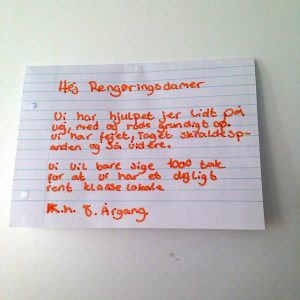 Hej Rengøringsdamer
Vi har hjulpet jer lidt på
vej, med og rode grundigt op.
Vi har fejet, Taget skraldesp-
anden og så videre.
Vi vil bare sige 1000 tak
for at vi har et dejligt
rent klasse lokale.
K.h. 8. Årgang.